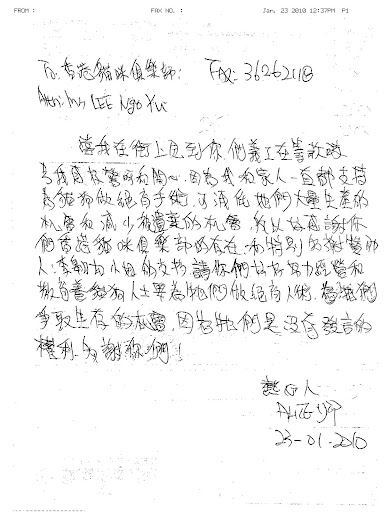 FROM : FAX NO. : Jan. 23 2010 12:37PM P1
To: 香港貓咪俱樂部: Fax: 36262118
Attn: Ms LEE Ngo Yu
當我在街上見到你們義工在籌款時
令我有極驚呀和開心，因為我和家人一直都支持
為貓狗做絕育手術，可減低牠們大量生產的
機會和減少被遺棄的機會，所以好感謝你
們香港貓咪俱樂部的存在，和特別的謝聯絡
人：李 小姐的支持，請你們好好努力經營和
教育養貓狗人士要為牠們做絕育人術，為牠們
爭取生存的機會，因為牠們是沒有發言的
權利，多謝你們！
人
23-01-2010